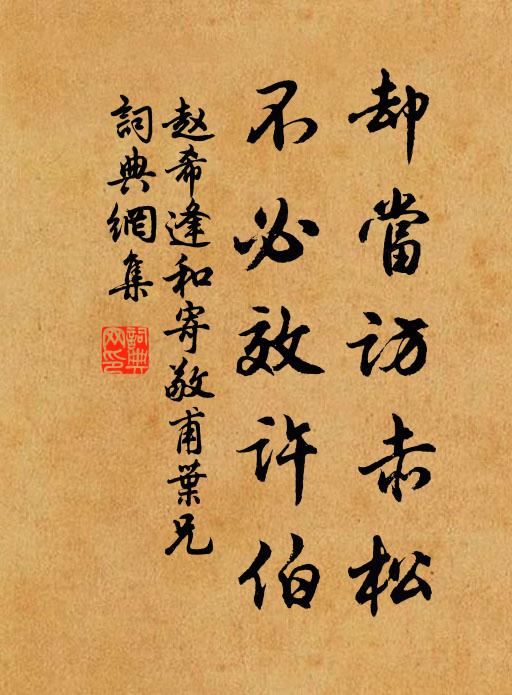 却當訪赤松
不必效許伯
赵希逢和寄敬甫葉兄
詞典網集
詞典
网印